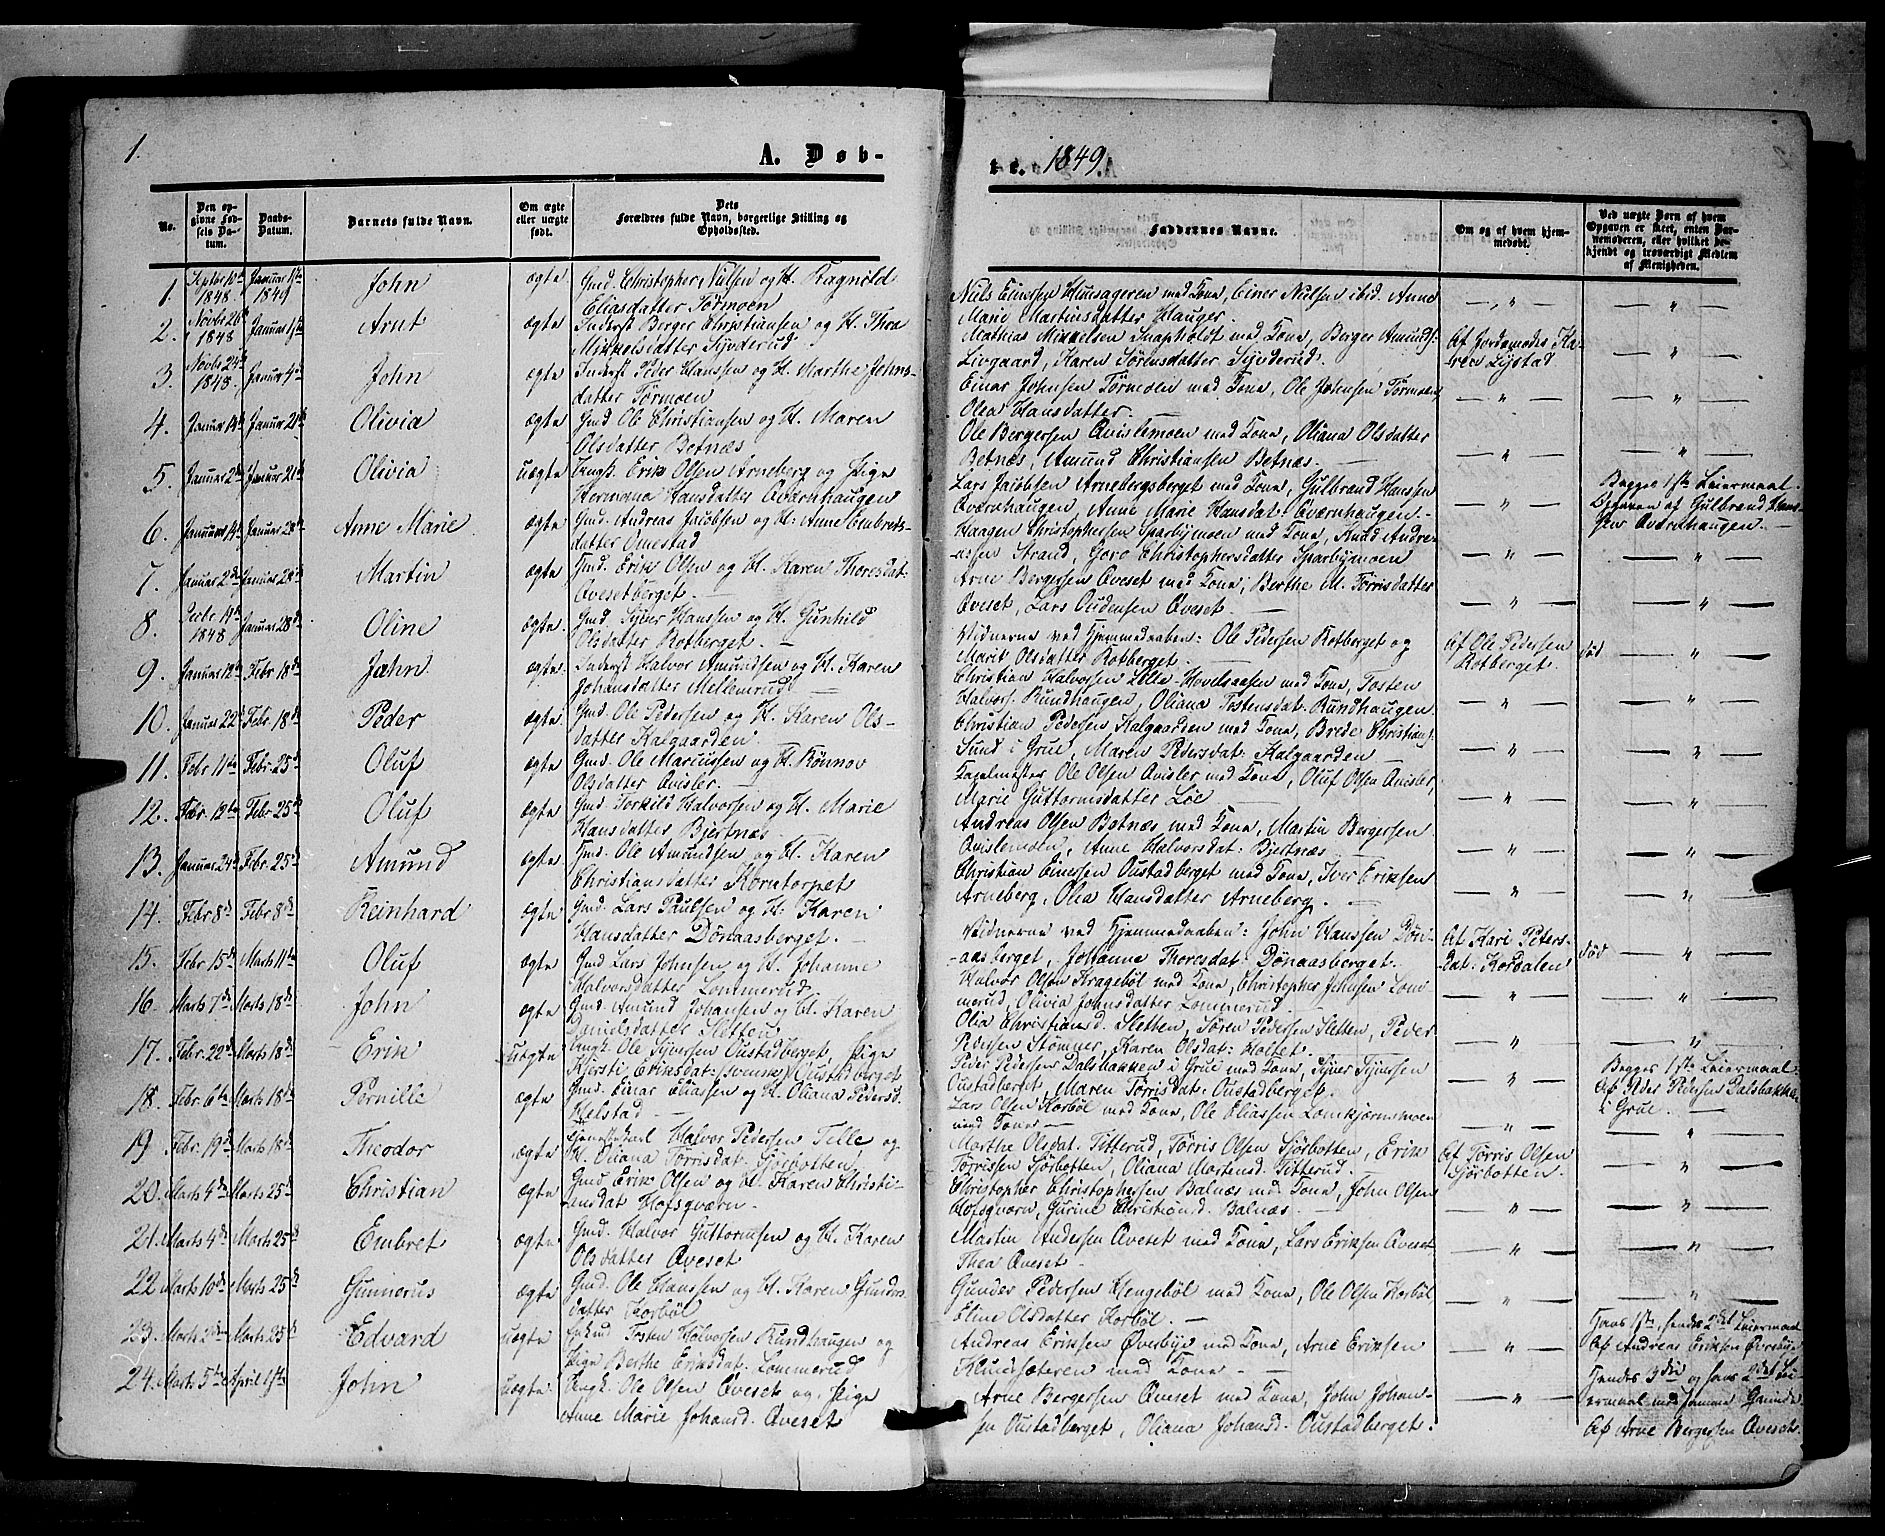 1.
A. Døb-
No.
Den op-
givne Fød-
sels Da-
tum.
Daabs-
Datum.
Barnets fulde Navn.
Om ægte
eller uægte
født.
Dets
Forældres fulde Navn, borgerlige Stilling og
Opholdssted.
1. Septbr 10de 1848 Januar 1ste 1849 John ægte Gmd. Christopher Nielsen og H. Ragnild
Eliasdatter Tørmoen
2. Novbr 26de 1848 Januar 1ste Arnt ægte Inderst Berger Christiansen og H. Thea
Mikkelsdatter Syverud
3. Novbr 24de 1848 Januar 4de John ægte Inderst Peder Hanssen og H. Marthe Johns-
datter Tørmoen
4. Januar 14de Januar 21de Olivia ægte Gmd Ole Christiansen og H. Maren
Olsdatter Botnæs
5. Januar 2den Januar 21de Olivia uægte Ungk. Erik Olsen Arneberg og Pige
Hermana Hansdatter Qværnhaugen
6. Januar 14de Januar 28de Anne Marie ægte Gmd. Andreas Jacobsen og H: Anne Embrets-
datter Omestad
7. Januar 2den Januar 28de Martin ægte Gmd. Erik Olsen og H. Karen Thoresdat:
Øvesetberget.
8. Decbr 14de 1848 Januar 28de Oline ægte Gmd. Syver Hanssen og H. Gunhild
Olsdatter Rotberget.
9. Januar 12te Febr 18de John ægte. Inderst Halvor Amundsen og H. Karen
Johansdatter Mellemrud
10. Januar 22de Febr. 18de Peder ægte. Gmd. Ole Pedersen og H. Karen Ols-
datter Kalgaarden
11. Febr 11te Febr 25de Oluf ægte Gmd. Ole Marcussen og H. Rønnov
Olsdatter Qvisler.
12. Febr. 12te Febr 25de Oluf ægte Gmd. Torkild Halvorsen og H. Marie
Hansdatter Bjertnæs.
13. Januar 24de Febr. 25de Amund ægte Gmd. Ole Amundsen og H. Karen
Christiansdatter Korntorpet
14. Febr 8de Febr 8de Reinhard ægte Gmd. Lars Paulsen og H: Karen
Hansdatter Dønaasberget.
15. Febr. 15de Marts 11te Oluf ægte Gmd Lars Johnsen og H. Johanne
Halvorsdatter Lommerud
16. Marts 7de Marts 18de John ægte Gmd. Amund Johansen og H. Karen
Danielsdatter Sletten
17. Febr. 22de Marts 18de Erik uægte Ungk. Ole Syversen Oustadberget, Pige
Kjersti Eriksdat: (svensk) Oustadberget
18. Febr 6te Marts 18de Pernille ægte Gmd. Einar Eliassen og H. Oliana Pedersd.
Helstad
19. Febr. 19de Marts 18de Theodor ægte Tjenestekarl Halvor Pedersen Tille og
H. Oliana Tørrisdat. Sjørbotten
20. Marts 4de Marts 25de Christian ægte Gmd Erik Olsen og H. Karen Christi-
ansdat Hofsqværn
21. Marts 4de Marts 25de Embret ægte Gmd. Halvor Guttormsen og H. Karen
Olsdatter Øveset
22 Marts 10de Marts 25de Gunnerus ægte Gmd. Ole Hanssen og H. Karen Gunders
datter Korbøl
23. Marts 2den Marts 25de Edvard uægte Enkmd Tosten Halvorsen Rundhaugen og
Pige Berthe Eriksdat. Lommerud
24. Marts 5te April 1ste John uægte Ungk. Ole Olsen Øveset og Pige
Anne Marie Johansd. Øveset
te. 1849.
Faddernes Navne.
Om og af hvem hjem-
medøbt.
Ved uægte Børn af hvem
Opgaven er skeet, enten Bar-
nemoderen, eller hvilket be-
kjendt og troværdigt Medlem
af Menigheden.
Niels Einersen Hunsageren med Kone, Einer Nielsen ibid. Anne
Marie Martinsdatter Hauger.
Mathias Mikkelsen Snapholdt med Kone, Berger Amunds.
Livgaard, Karen Sørensdatter Syverud.
Af Jordemoder Ka-
ren Lystad
Einar Johnsen Tørmoen med Kone, Ole Johnsen Tørmoen,
Olea Hansdatter.
Ole Bergersen Qvislemoen med Kone, Oliana Olsdatter
Botnæs, Amund Christiansen Botnæs.
Lars Jacobsen Arnebergsberget med Kone, Gulbrand Hansen
Qværnhaugen, Anne Marie Hansdat. Qværnhaugen
Begges 1ste Leiermaal.
Opgaven af Gulbrand Han-
sen Qværnhaugen.
Haagen Christophersen Sparbymoen med Kone, Knud Andre-
assen Strand, Goro Christophersdatter Sparbymoen
Arne Bergersen Øveset med Kone, Berthe M. Tørrisdatter
Øveset, Lars Oudensen Øveset.
Vidnerne ved Hjemmedaaben: Ole Pedersen Rotberget og
Marit Olsdatter Rotberget.
Af Ole Pedersen
Rotberget.
død
Christian Halvorsen Lille-Hovelsaasen med Kone, Tosten
Halvors. Rundhaugen, Oliana Tostensdat: Rundhaugen.
Christian Pedersen Kalgaarden med Kone, Brede Christians.
Sund i Grue, Maren Pedersdat: Kalgaarden
Ole Olsen Qvisler med Kone, Oluf Olsen Qvisler,
Marie Guttormsdatter Løe
Andreas Olsen Botnæs med Kone, Martin Bergersen
Qvislemoen, Anne Halvorsdat: Bjertnæs
Christian Einersen Oustadberget med Kone, Iver Eriksen
Arneberg, Olea Hansdatter Arneberg.
Vidnerne ved Hjemmedaaben: John Hanssen Døn-
aasberget, Johanne Thoresdat: Dønaasberget.
Af Kari Peters-
dat: Kordalen
død
Halvor Olsen Kragebøl med Kone, Christopher Johnsen Lom-
merud, Olivia Johnsdatter Lommerud.
Olia Christiansd. Sletten, Søren Pedersen Sletten, Peder
Pedersen Stømner, Karen Olsdat: Holtet.
Peder Pedersen Dalsbakken i Grue med Kone, Syver Syversen
Oustadberget, Maren Tørrisdat: Oustadberget.
Begges 1ste Leiermaal.
Af Peder Pedersen Dalsbakken
i Grue.
Lars Olsen Korbøl med Kone, Ole Eliassen Lomkjernsmoen
med Kone
Marthe Olsdat. Titterud, Tørris Olsen Sjørbotten, Erik
Tørrissen Sjørbotten, Oliana Martensd. Titterud.
Af Tørris Olsen
Sjørbotten.
Christopher Christophersen Balnæs med Kone, John Olsen
Hofsqværn, Gurine Christiansd. Balnæs.
Martin Andersen Øveset med Kone, Lars Eriksen Øveset
Thea Øveset
Gunder Pedersen Hengebøl med Kone, Ole Olsen Korbøl
Eline Olsdatter Korbøl.
Andreas Eriksen Øverbye med Kone, Arne Eriksen
Knudsæteren med Kone
Hans 1ste, hendes 2det Leiermaal
Af Andreas Eriksen Øverbye
Arne Bergersen Øveset med Kone, John Johan-
sen Oustadberget, Oliana Johansd. Oustadberget.
Hendes 3die og hans 2det Lei-
ermaal med samme Qvinde
Af Arne Bergersen Øveset.